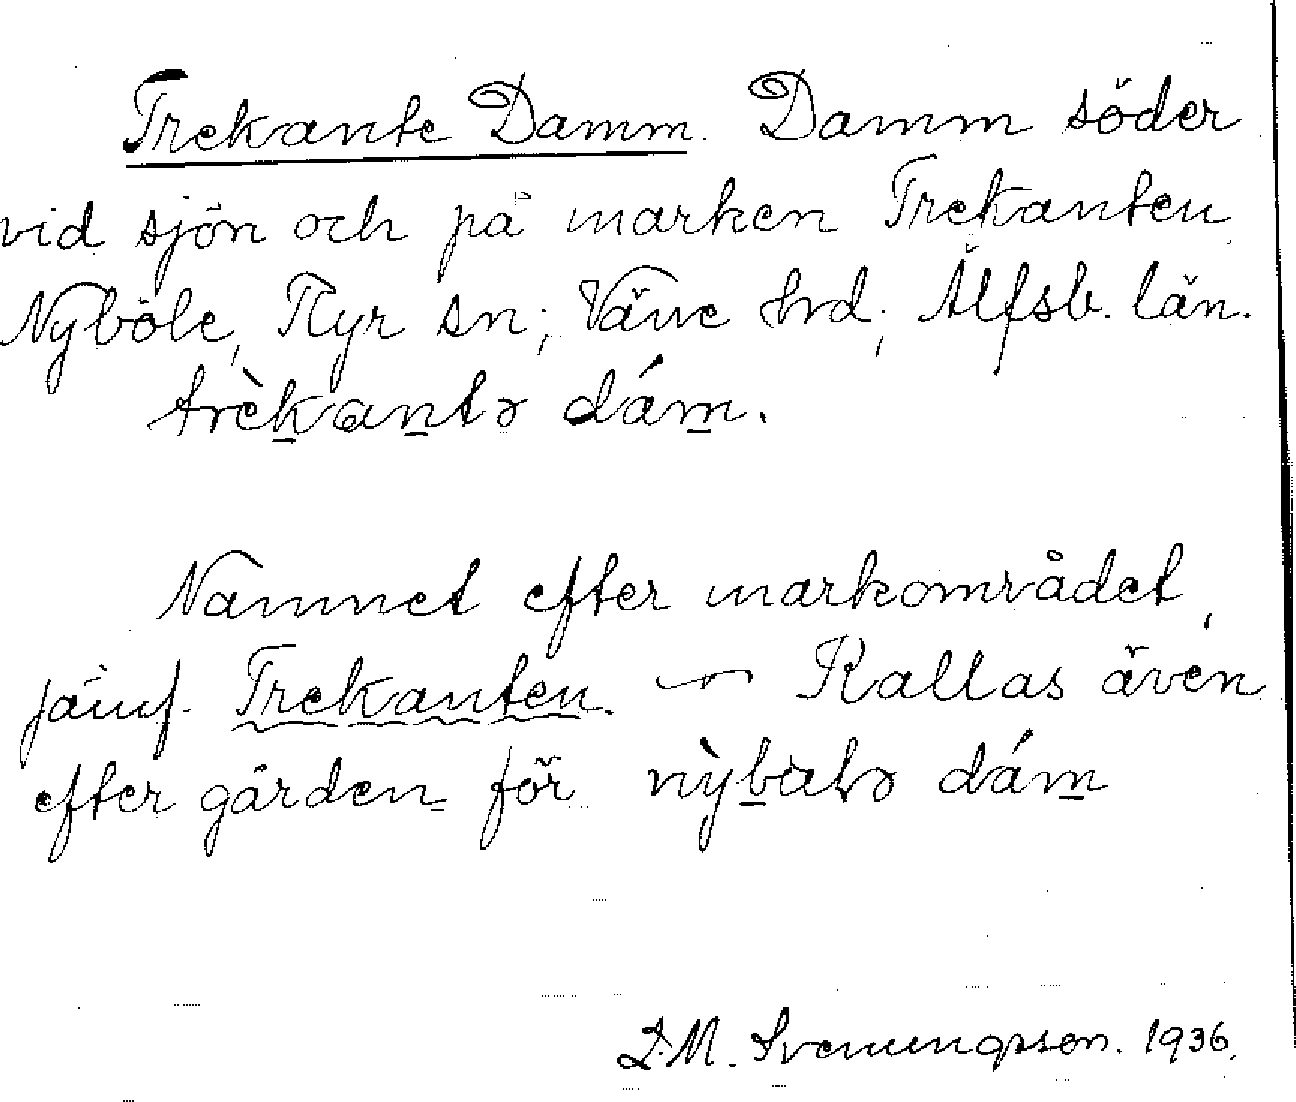 Trekante Damm. Damm söder
vid sjön och på marken Trekanten
Nyböle, Ryr sn; Väne hrd; Älfsb. län.
trèkantə dám.
Namnet efter markområdet,
jämf. Trekanten. — Kallas även
efter gården för nỳbɵlə dám
D.M. Svenungsson. 1936.